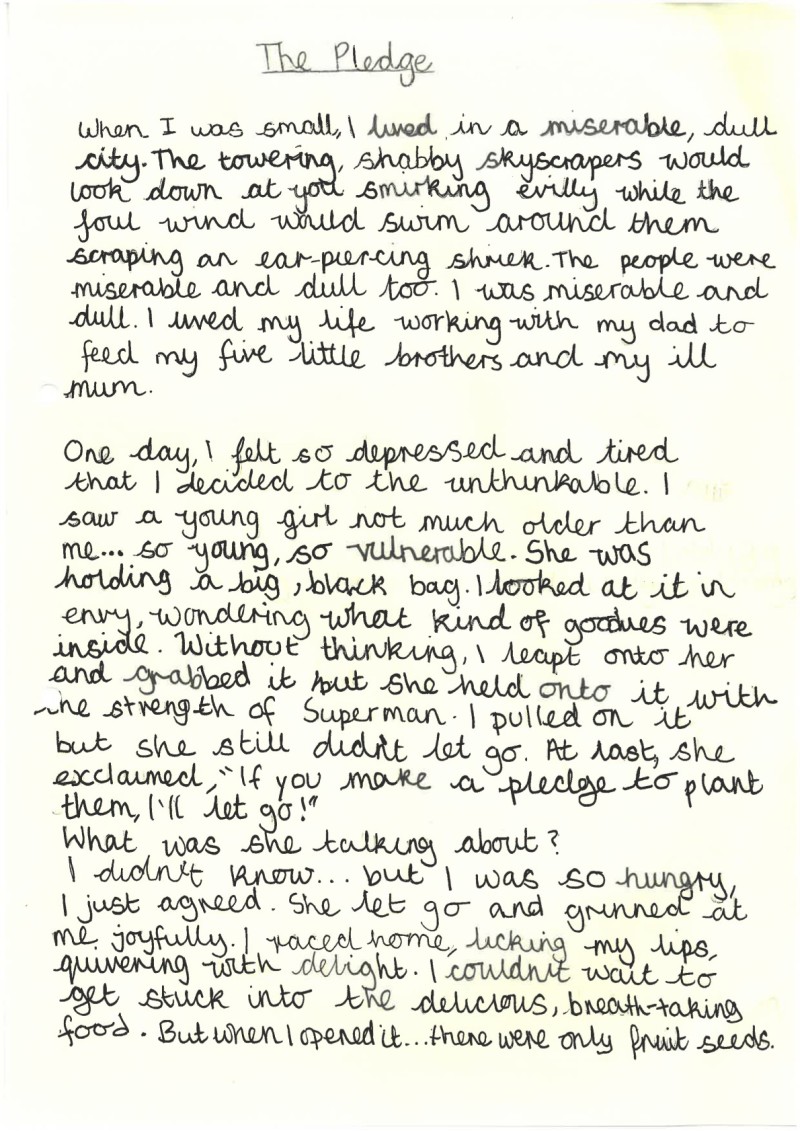 The Pledge
When I was small, I lived in a miserable, dull
city. The towering, shabby skyscrapers would
look down at you smirking evilly while the
foul wind would swim around them
scraping an ear-piercing shriek. The people were
miserable and dull too. I was miserable and
dull. I lived my life working with my dad to
feed my five little brothers and my ill
mum.
One day, I felt so depressed and tired
that I decided to the unthinkable. I
saw a young girl not much older than
me... so young, so vulnerable. She was
holding a big, black bag. I looked at it in
envy, wondering what kind of goodies were
inside. Without thinking, I leapt onto her
and grabbed it but she held onto it with
the strength of Superman. I pulled on it
but she still didn't let go. At last, she
exclaimed, "If you make a pledge to plant
them, I'll let go!"
What was she talking about?
I didn't know... but I was so hungry,
I just agreed. She let go and grinned at
me joyfully. I raced home, licking my lips,
quivering with delight. I couldn't wait to
get stuck into the delicious, breath-taking
food. But when I opened it... there were only fruit seeds.